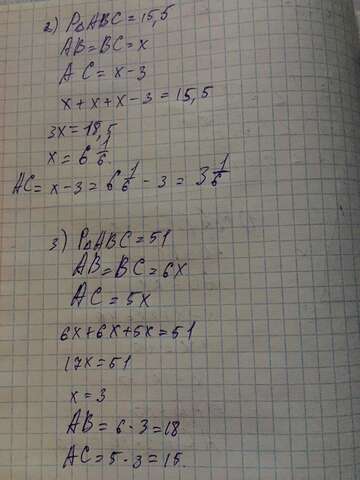 2) P△ABC=15,5
AB=BC=x
AC=x-3
x+x+x-3=15,5
3x=18,5
x=6 1/6
AC= x-3=6 1/6-3=3 1/6
3) P△ABC=51
AB=BC=6x
AC=5x
6x+6x+5x=51
17x=51
x=3
AB=6·3=18
AC=5·3=15.